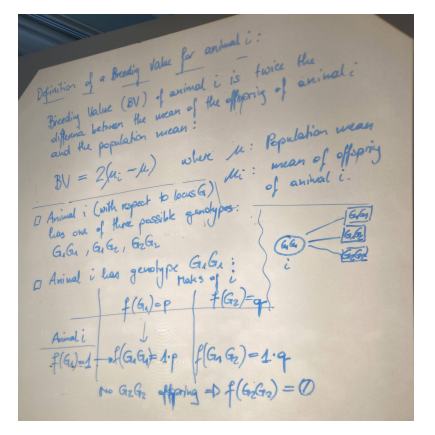 Definition of a Breeding Value for animal i:
Breeding Value (BV) of animal i is twice the
difference between the mean of the offspring of animal i
and the population mean:
BV = 2(μi − μ) where μ: Population mean
μi: mean of offspring
of animal i.
□ Animal i (with respect to locus G)
has one of three possible genotypes:
G1G1, G1G2, G2G2
G1G1
G1G1
G1G2
G2G2
i
□ Animal i has genotype G1G1:
Mates of i
f(G1)=p f(G2)=q
Animal i
f(G1)=1 f(G1G1)=1·p f(G1G2)=1·q
No G2G2 offspring ⇒ f(G2G2)=0